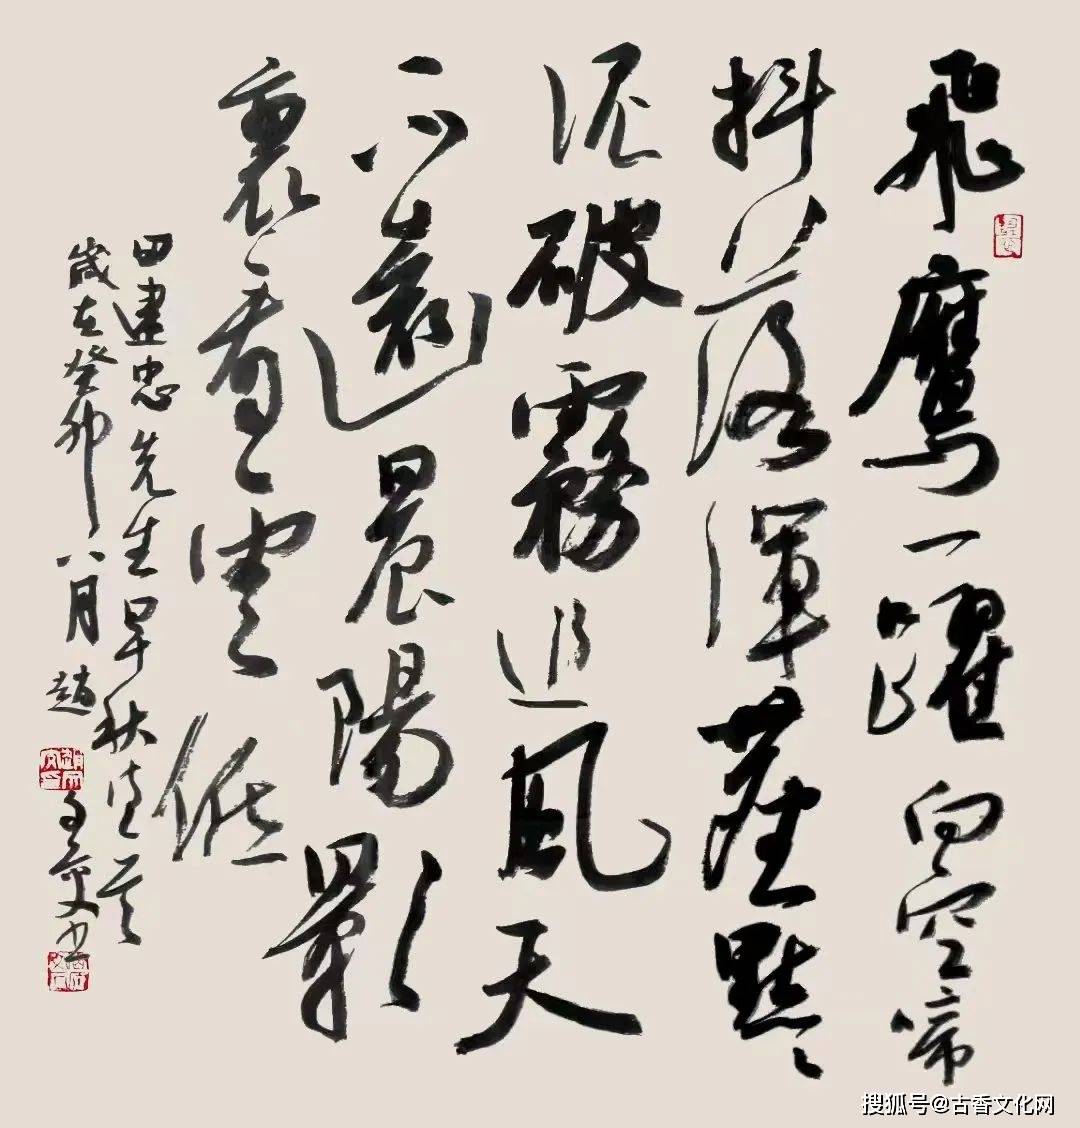 飛鷹一躍向空啼
抖落渾塵點點
泥破霧追風天
不遠晨陽影
裏看雲低
田建忠先生早秋
歲在癸卯八月趙
搜狐号@古香文化网